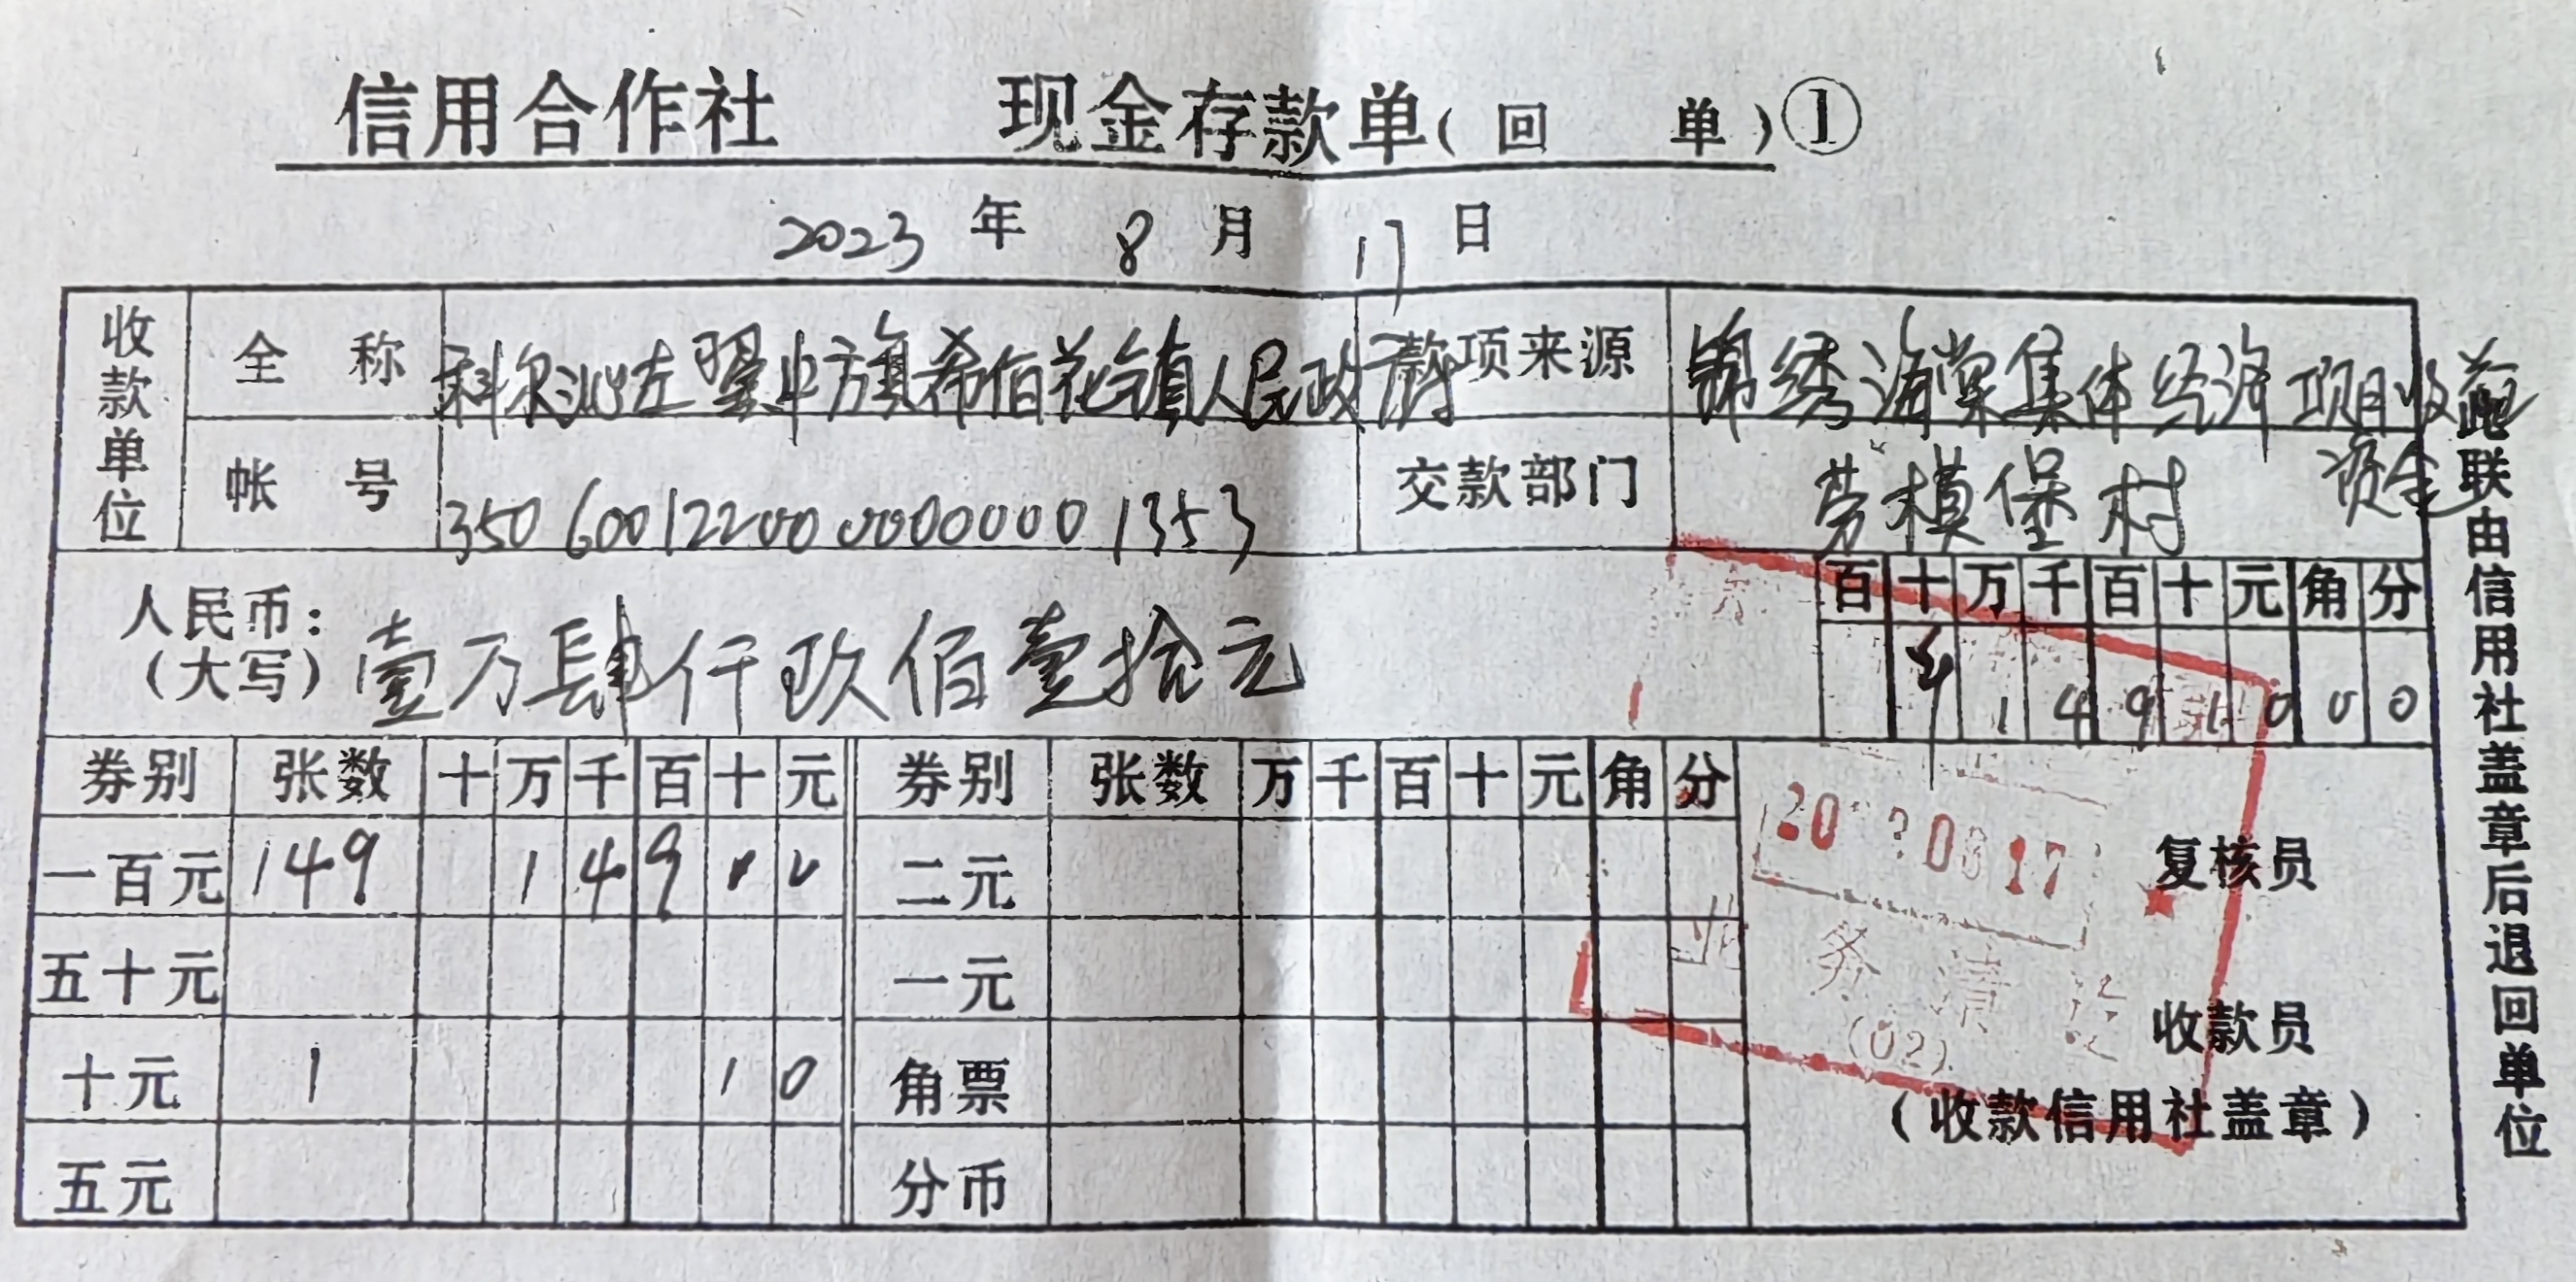 信用合作社 现金存款单(回 单)①
2023 年 8 月 17 日
收款单位 全 称 科尔沁左翼中旗希伯花镇人民政府 款项来源 锦绣海棠集体经济项目收益资金
帐 号 350600122000000000 1353 交款部门 劳模堡村
人民币:(大写) 壹万肆仟玖佰壹拾元
百 十 万 千 百 十 元 角 分
¥ 1 4 9 1 0 0 0
券别 张数 十 万 千 百 十 元 券别 张数 万 千 百 十 元 角 分
一百元 149 1 4 9 0 0 二元
五十元 一元
十元 1 1 0 角票
五元 分币
20 2 08 17
业务清讫
(02)
复核员
收款员
(收款信用社盖章)
此联由信用社盖章后退回单位